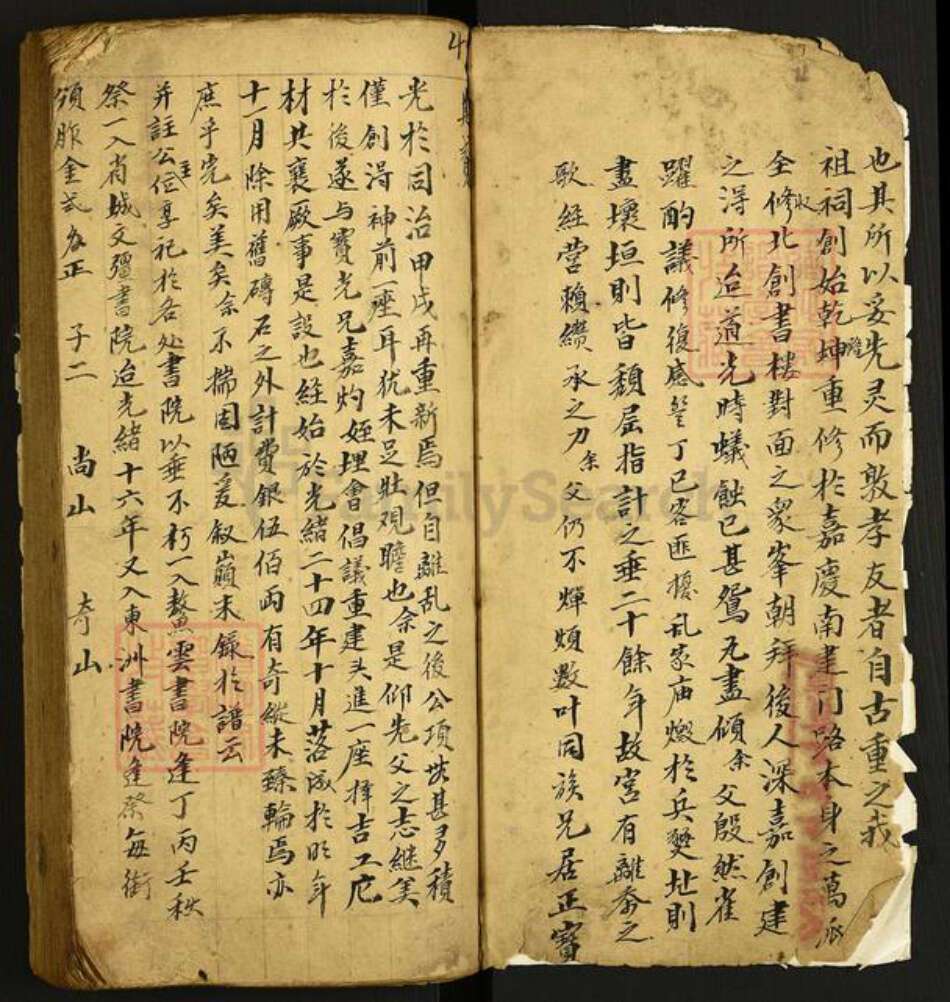 也其所以妥先灵而敦孝友者自古重之我
祖祠創始乾隆坤重修於嘉慶南建门路本身之萬派
全收修北創書樓對面之衆峯朝拜後人深嘉創建
之淂所迨道光時蟻蝕已甚鴛瓦盡傾余父殷然雀
躍酌議修復感丁已客匪擾乱家庙燬於兵燹址則
盡壞垣則皆頽屈指計之垂二十餘年故宮有離黍之
歌经营賴纘承之力余父仍不憚煩數叶同族兄居正寶
光於同治甲戌再重新焉但自離乱之後公項甚多積
僅創淂神前一座耳犹未足壯观瞻也余是仰先父之志継美
於後遂与寶光兄嘉灼姪埋會倡議重建头進一座擇吉工庀
材共襄厥事是設也经始於光緒二十四年十月落成於昨年
十一月除用舊磚石之外計費銀伍佰両有奇縱未臻輪焉亦
庶乎完矣美矣余不揣固陋爰叙巔末錄於譜云
并註公位主享祀於各处書院以垂不朽一入鰲雲書院逢丁丙壬秋
祭一入省城文彊書院迨光緒十六年又入東洲書院逢祭每街
頒胙金弍名正 子二 尚山 奇山
4
FamilySearch